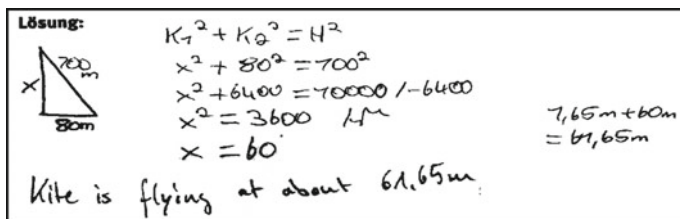 Lösung:
K₁² + K₂² = H²
x² + 80² = 100²
x² + 6400 = 10000 /-6400
x² = 3600 /√
x = 60
x
100 m
80m
1,65m + 60m
= 61,65m
Kite is flying at about 61,65m.